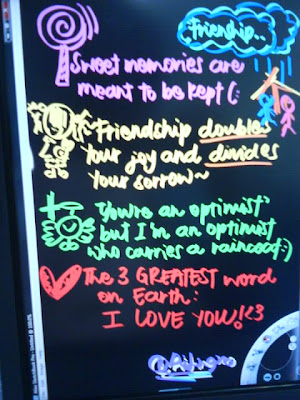 Friendship...
Sweet memories are
meant to be kept (:
~Friendship doubles
your joy and divides
your sorrow~
You're an optimist
but I'm an optimist
who carries a raincoat:)
The 3 GREATEST word
on Earth:
I LOVE YOU!<3